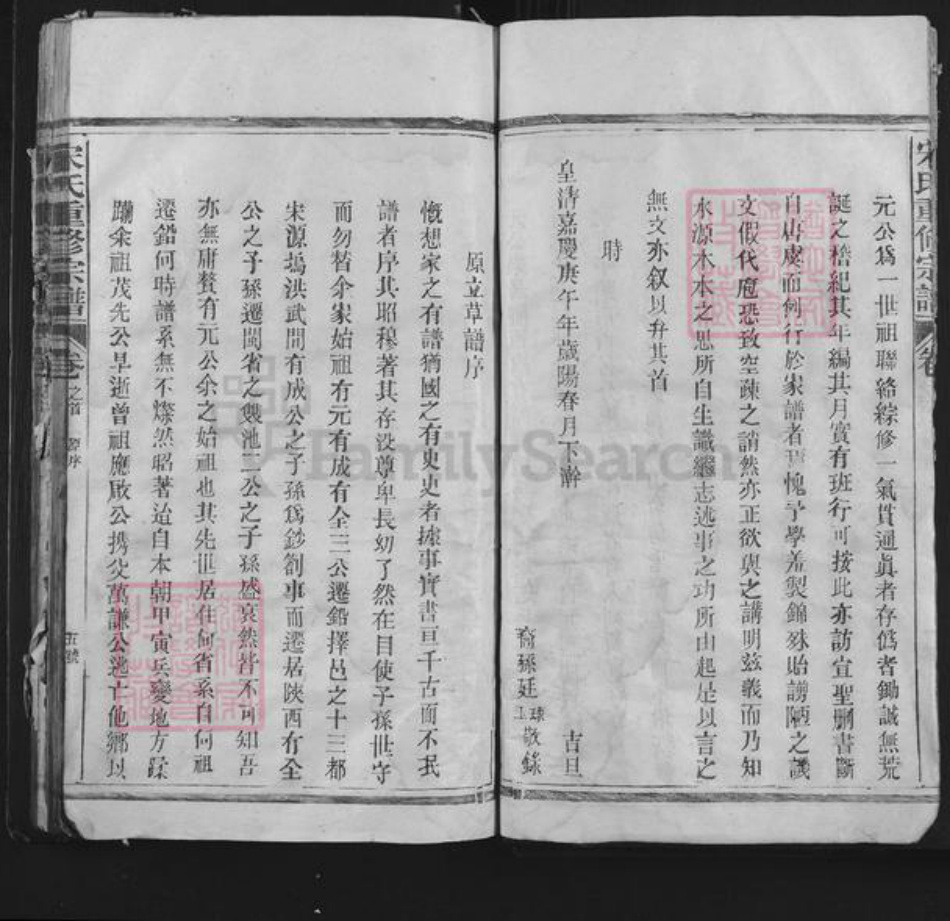 元公爲一世祖聯絡綜修一氣貫通眞者存僞者鋤誠無荒
誕之稽紀其年編其月實有班行可按此亦訪宣聖刪書斷
自唐虞而例行於家譜者耳愧予學羞製錦殊貽謗陋之譏
文假代庖恐致空疎之誚然亦正欲與之講明玆義而乃知
水源木本之思所自生識繼志述事之功所由起是以言之
無文亦叙以弁其首
時
皇淸嘉慶庚午年歲陽春月下澣
吉旦
裔孫廷 球 敬錄
宋氏重修宗譜
原立草譜序
慨想家之有譜猶國之有史史者據事實書亘千古而不民
譜者序其昭穆著其存没尊卑長幼了然在目使子孫世守
而勿替余家始祖有元有成有全三公遷鉛擇邑之十三都
宋源塢洪武間有成公之子孫爲鈔劄事而遷居陝西有全
公之子孫遷閩省之甌池二公之子孫盛衰然皆不可知吾
亦無庸贅有元公余之始祖也其先世居住何省系自何祖
遷鉛何時譜系無不燦然昭著迨自本朝甲寅兵變地方蹂
躪余祖茂先公早逝曾祖應敗公携父萬謙公逃亡他鄉以
宋氏重修宗譜 卷之首 譜序 五號
FamilySearch